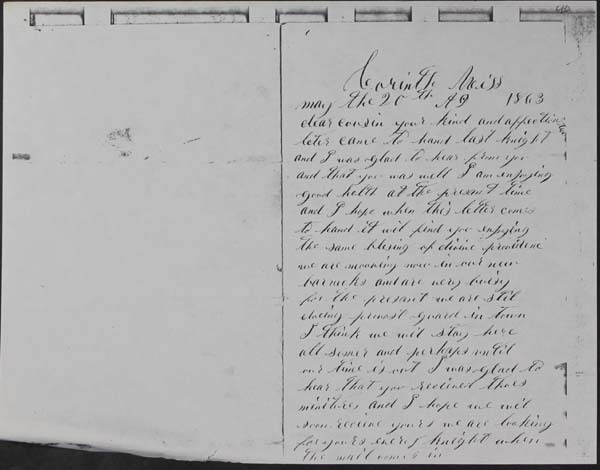 Corinth Miss
may the 20th AD 1863
dear cousin your kind and affectionate
leter came to hand last knight
and I was glad to hear frome you
and that you was well I am enjoying
good helth at the present time
and I hope when this letter comes
to hand it wil find you enjoying
the same blesing of divine providenc
we are mooving now in our new
barracks and are very buisy
for the present we are stil
doeing provost guard in town
I think we wil stay here
all somer and perhaps until
our time is out I was glad to
hear that you received thoes
minitures and I hope we wil
soon receive yours we are looking
for yours every knight when
the mail comes in